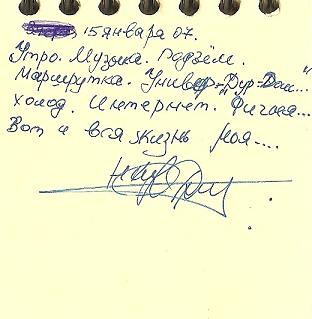 15 января 07.
Утро. Музыка. Подъём.
Маршрутка. Универ-"Дур-Дом..."
холод. Интернет. Фигня...
Вот и вся жизнь моя....